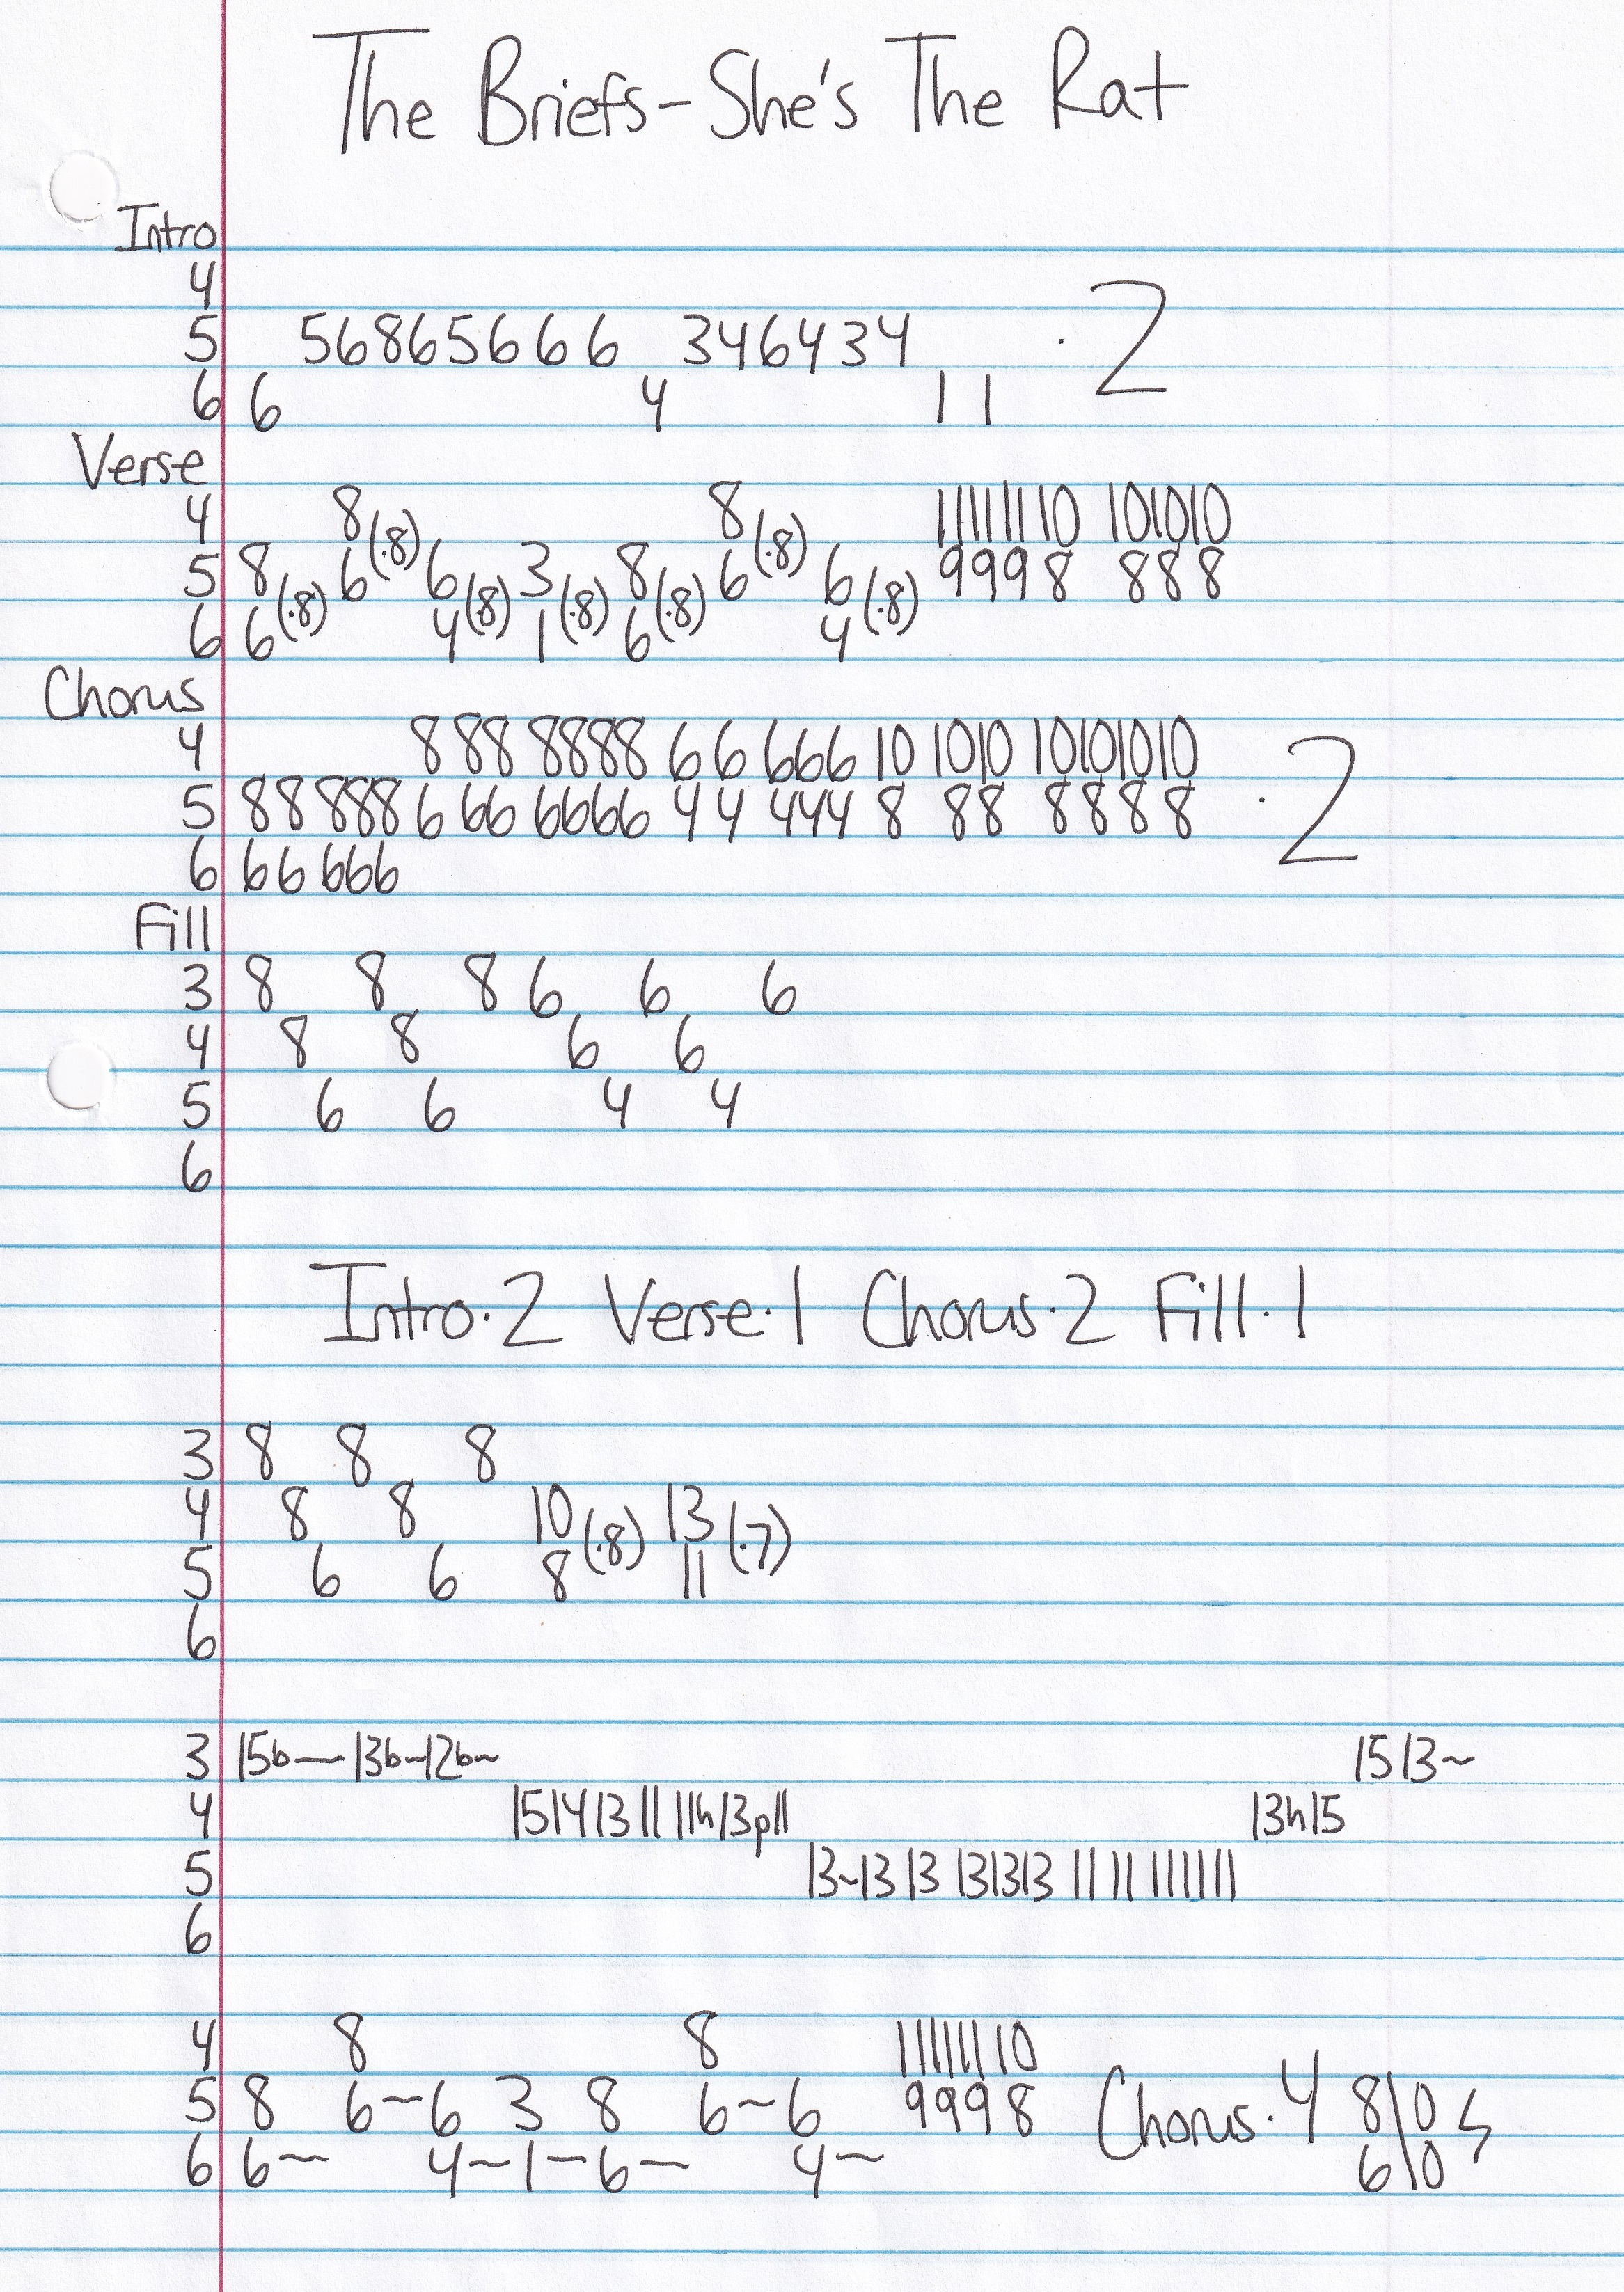 The Briefs - She's The Rat
Intro
4
5 56865666 346434 · 2
6 6 4 1 1
Verse
4 8 (·8) 8 (·8) 11 11 11 10 10 10 10
5 8 (·8) 6 6 (·8) 3 (·8) 8 (·8) 6 6 (·8) 9 9 9 8 8 8 8
6 6 4 1 6 4
Chorus
4 8 88 8888 6 6 666 10 1010 10101010
5 88 888 6 66 6666 4 4 444 8 88 8888 · 2
6 66 666
Fill
3 8 8 8 6 6 6
4 8 8 6 6
5 6 6 4 4
6
Intro·2 Verse·1 Chorus·2 Fill·1
3 8 8 8
4 8 8 10 (·8) 13 (·7)
5 6 6 8 11
6
3 15b— 13b~12b~ 15 13~
4 15 14 13 11 11h13p11 13h15
5 13~13 13 131313 11 11 111111
6
4 8 8 11 11 11 10
5 8 6~6 3 8 6~6 9 9 9 8 Chorus·4 8\0 S
6 6~ 4~1~6~ 4~ 6\0